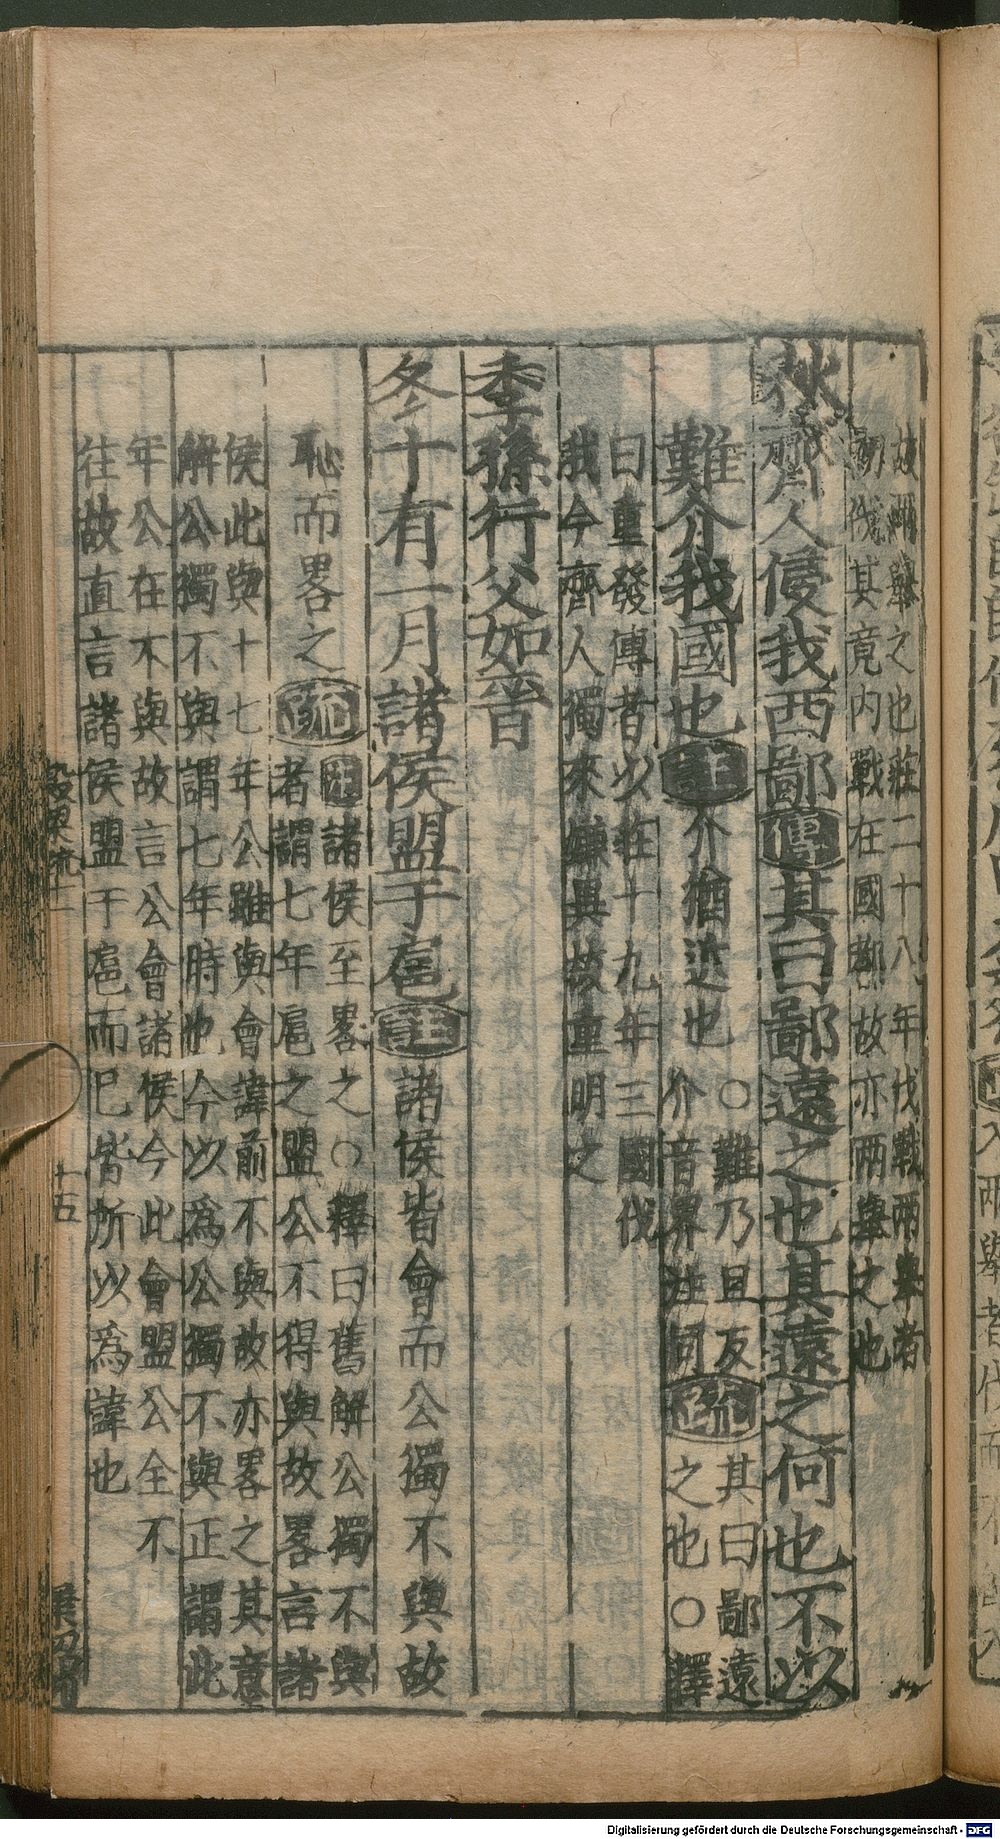 故兩舉之也莊二十八年伐戰兩舉者
伐其竟內戰在國都故亦兩舉之也
秋齊人侵我西鄙傳其曰鄙遠之也其遠之何也不以
難介我國也註介猶近也
○難乃旦反
介音界注同
疏其曰鄙遠
之也○釋
曰重發傳者以莊十九年三國伐
我今齊人獨來嫌異故重明之
季孫行父如晉
冬十有一月諸侯盟于扈註諸侯皆會而公獨不與故
恥而畧之疏
註諸侯至畧之○釋曰舊解公獨不與
者謂七年扈之盟公不得與故畧言諸
侯此與十七年公雖與會諱前不與故亦畧之其意
解公獨不與謂七年時也今以為公獨不與正謂此
年公在不與故言公會諸侯今此會盟公全不
往故直言諸侯盟于扈而已皆所以為諱也
穀梁疏十一
十五
Digitalisierung gefördert durch die Deutsche Forschungsgemeinschaft - DFG